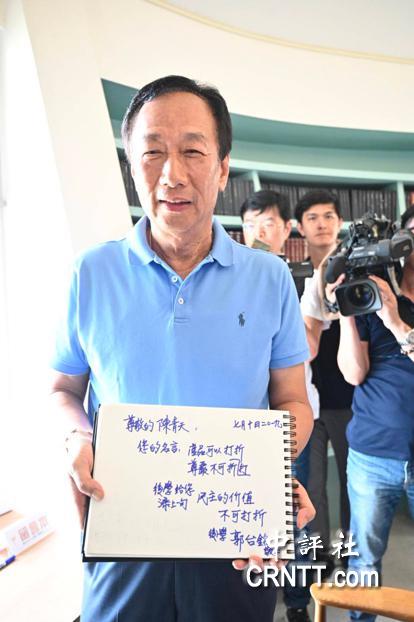 尊敬的陳青天， 七月十日二〇一九
您的名言，產品可以打折
尊嚴不可折扣
後學給您
添上一句 民主的价值
不可打折
後學 郭台銘
中評社
CRNTT.com